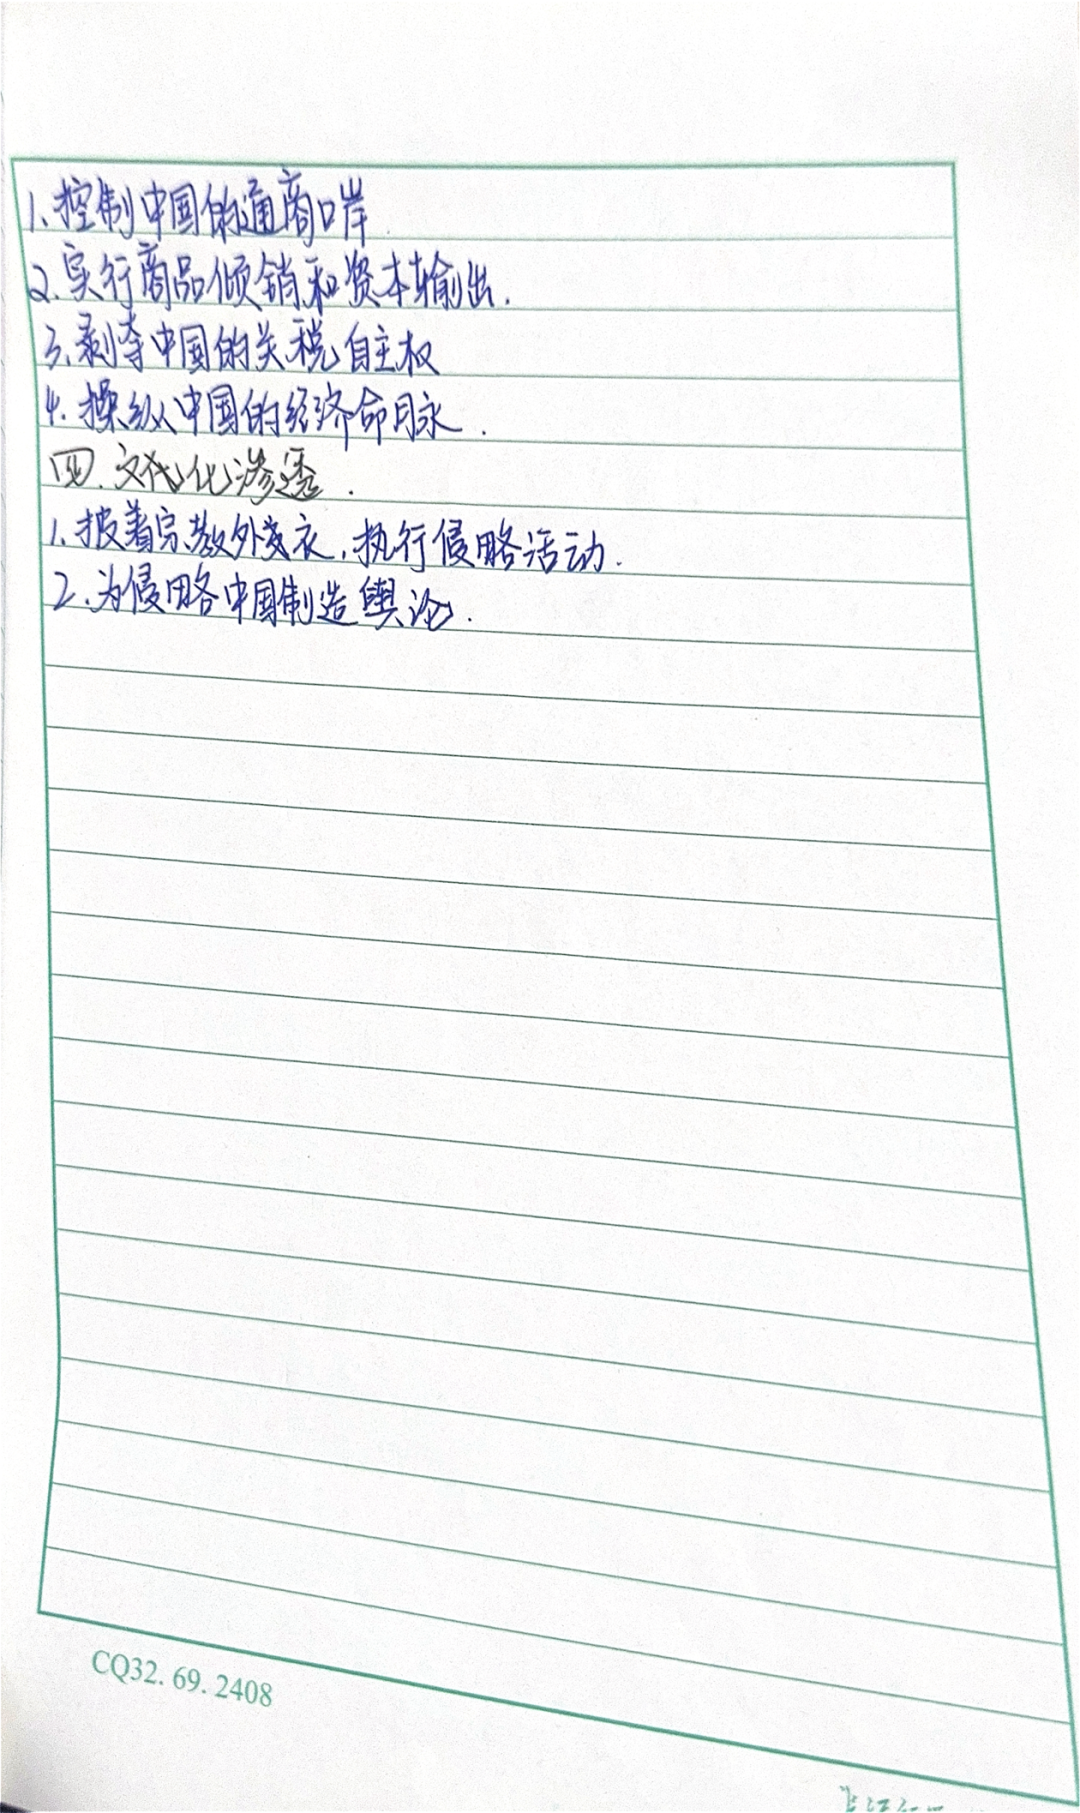 1.控制中国的通商口岸
2.实行商品倾销和资本输出.
3.剥夺中国的关税自主权
4.操纵中国的经济命脉.
四.文化渗透.
1.披着宗教外衣,执行侵略活动.
2.为侵略中国制造舆论.
CQ32. 69. 2408